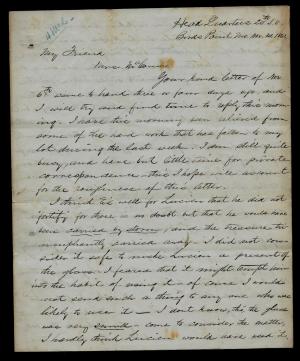 Head Quarters 20th
Birds Point Mo Nov. 20, 1861
My Friend
Your kind letter of Nov
6th came to hand three or four days ago, and
I will try and find time to reply this mor-
ning. I have this morning been relieved from
some of the hard work that has fallen to my
lot during the last week. I am still quite
busy, and have but little time for private
correspondence. This I hope will account
for the roughness of this letter.
I think it's well for Lucien that he did not
fortify, for there is no doubt but that he would have
been carried by storm, and the treasure tri-
umphantly carried away. I did not con-
sider it safe to make Lucien a present of
the glass. I feared that it might tempt him
into the habit of using it — of course I would
not send such a thing to any one who was
likely to use it — I don't know, tho, the glass
was very small — come to consider the matter,
I hardly think Lucien would have used it